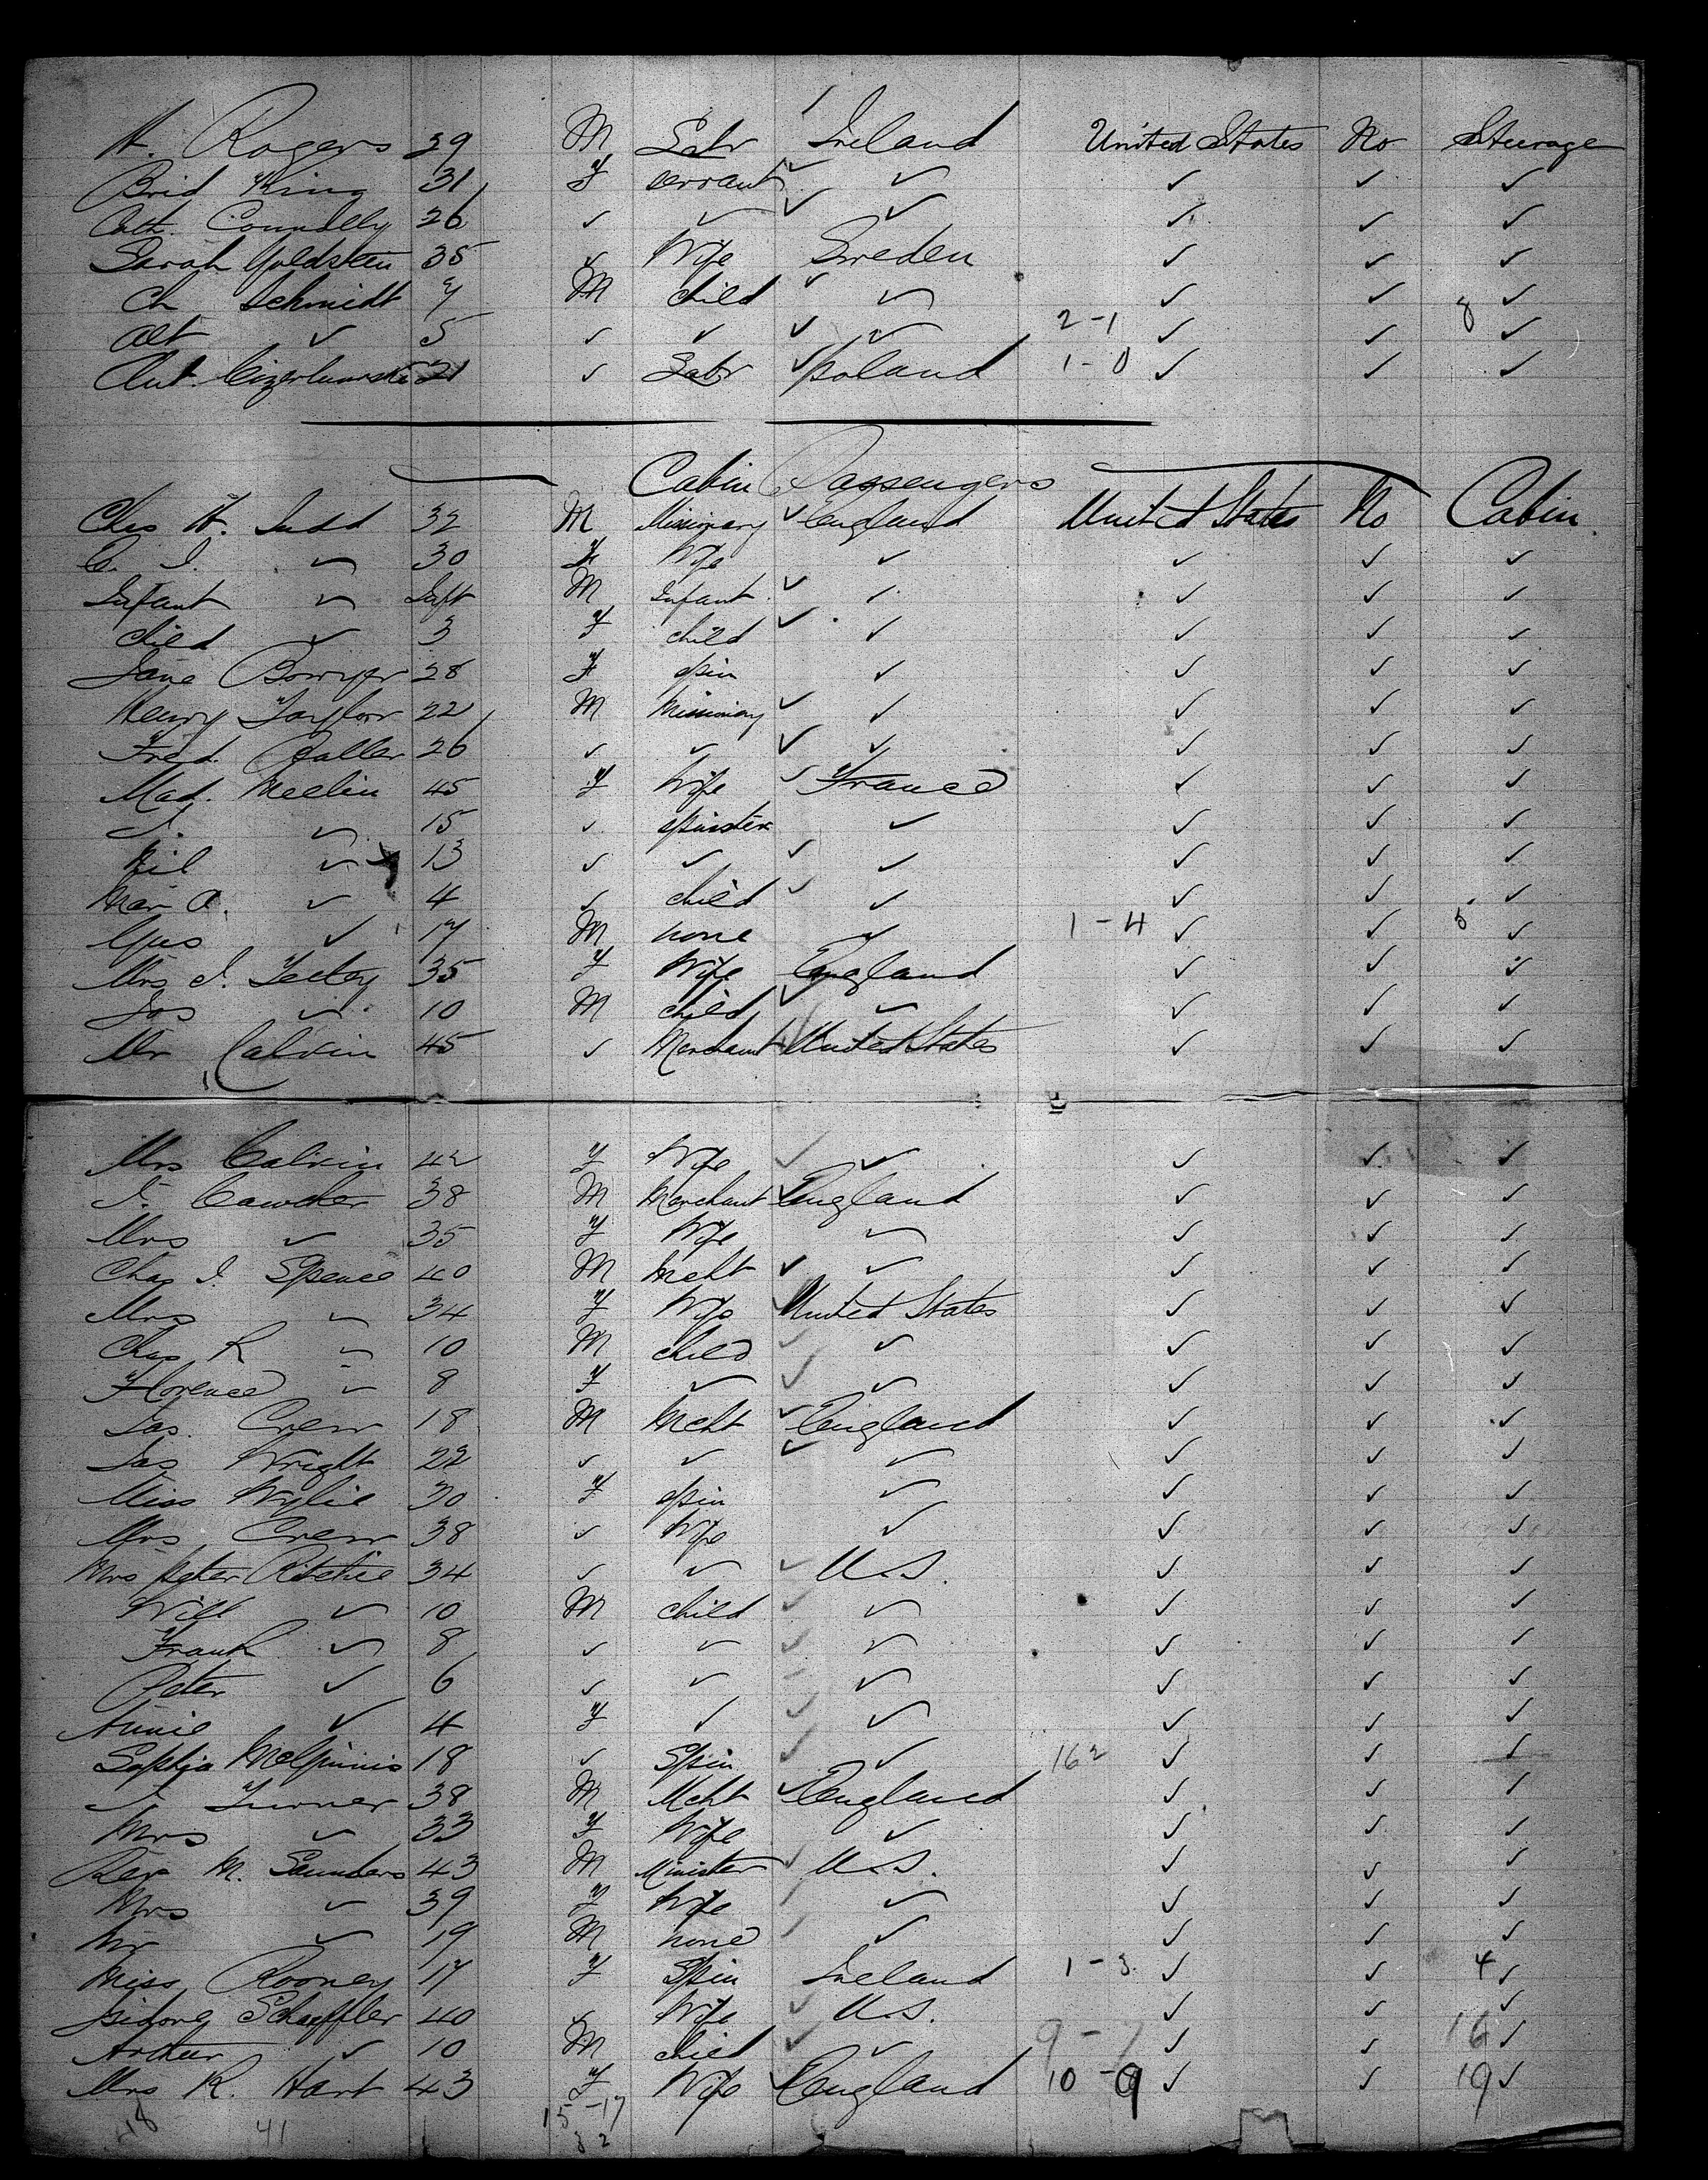 H. Rogers 29 M Labr Ireland United States No Steerage
Brid King 31 F servant ✓ ✓ ✓ ✓
Cath. Connelly 26 ✓ ✓ ✓ ✓ ✓ ✓
Sarah Goldstein 35 ✓ Wife Sweden ✓ ✓ ✓
Ch Schmidt 7 M child ✓ ✓ ✓ ✓
Alt ✓ 5 ✓ ✓ ✓ 2-1 ✓ ✓ 8 ✓
Ant. 21 ✓ Labr Poland 1-0 ✓ ✓ ✓
Cabin Passengers
Chas H. Judd 32 M Missionary England United States No Cabin
E. J. ✓ 30 F Wife ✓ ✓ ✓ ✓
Infant ✓ Inft M Infant ✓ ✓ ✓ ✓
child ✓ 3 F child ✓ ✓ ✓ ✓
Jane Bowyer 28 F spin ✓ ✓ ✓ ✓
Henry Taylor 22 M Missionary ✓ ✓ ✓ ✓
Fred. Baller 26 ✓ ✓ ✓ ✓ ✓ ✓
Mad. Meelin 45 F Wife France ✓ ✓ ✓
J. ✓ 15 ✓ spinster ✓ ✓ ✓ ✓
✓ 13 ✓ ✓ ✓ ✓ ✓ ✓
Mar A. ✓ 4 ✓ child ✓ ✓ ✓ ✓
Gus ✓ 17 M none ✓ 1-4 ✓ ✓ 5 ✓
Mrs J. 35 F Wife England ✓ ✓ ✓
Jos ✓ 10 M child ✓ ✓ ✓ ✓
Mr Calvin 45 ✓ Merchant United States ✓ ✓ ✓
Mrs Calvin 42 F Wife ✓ ✓ ✓ ✓
J. Cawcher 38 M Merchant England ✓ ✓ ✓
Mrs ✓ 35 F Wife ✓ ✓ ✓ ✓
Chas J. Spence 40 M Mcht ✓ ✓ ✓ ✓
Mrs ✓ 34 F Wife United States ✓ ✓ ✓
Chas R ✓ 10 M child ✓ ✓ ✓ ✓
Florence ✓ 8 F ✓ ✓ ✓ ✓ ✓
Jas. Crew 18 M Mcht England ✓ ✓ ✓
Jas Wright 22 ✓ ✓ ✓ ✓ ✓ ✓
Miss Wylie 30 F spin ✓ ✓ ✓ ✓
Mrs Crew 38 ✓ Wife ✓ ✓ ✓ ✓
Mrs Peter Ritchie 34 ✓ ✓ U.S. ✓ ✓ ✓
Will ✓ 10 M child ✓ ✓ ✓ ✓
Frank ✓ 8 ✓ ✓ ✓ ✓ ✓ ✓
Peter ✓ 6 ✓ ✓ ✓ ✓ ✓ ✓
Annie ✓ 4 F ✓ ✓ ✓ ✓ ✓
Sophia McGinnis 18 ✓ Spin ✓ 162 ✓ ✓ ✓
J. Turner 38 M Mcht England ✓ ✓ ✓
Mrs ✓ 33 F Wife ✓ ✓ ✓ ✓
Rev M. Saunders 43 M Minister U.S. ✓ ✓ ✓
Mrs ✓ 39 F Wife ✓ ✓ ✓ ✓
Mr ✓ 19 M none ✓ ✓ ✓ ✓
Miss Rooney 17 F Spin Ireland 1-3 ✓ ✓ 4 ✓
Isidore Schaeffler 40 ✓ Wife U.S. ✓ ✓ ✓
Arthur ✓ 10 M child ✓ 9-7 ✓ ✓ 16 ✓
Mrs R. Hart 43 F Wife England 10-9 ✓ ✓ 19 ✓
18 41 15-17
32